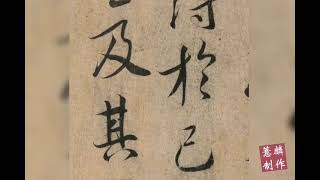 得於己
及其
薏麟
制作